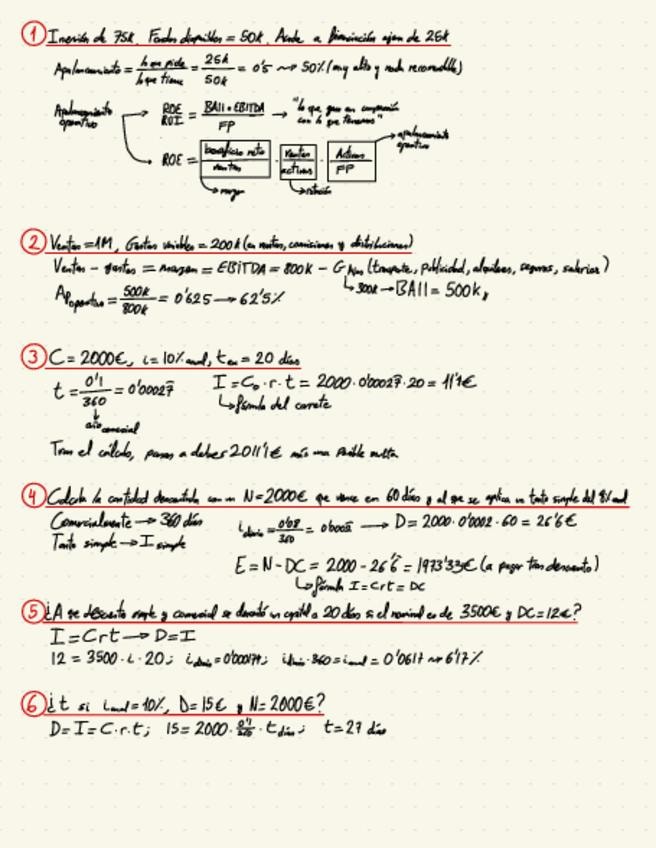 ① Inversión de 75k. Fondos disponibles = 50k. Acude a financiación ajena de 25k
Apalancamiento = lo que pide / lo que tiene = 25k / 50k = 0'5 → 50% (muy alto y nada recomendable)
Apalancamiento operativo → ROE ROI = BAII = EBITDA / FP → "lo que gano en comparación con lo que tenemos"
→ ROE = beneficio neto / ventas · ventas / activos · Activos / FP → apalancamiento operativo
→ margen → rotación
② Ventas = 1M, Gastos variables = 200k (en ventas, comisiones y distribuciones)
Ventas - gastos = margen = EBITDA = 800k - G fijos (transporte, publicidad, alquileres, seguros, salarios)
↳ 300k → BAII = 500k
Ap operativo = 500k / 800k = 0'625 → 62'5%
③ C = 2000€, i = 10% anual, t = 20 días
t = 0'1 / 360 = 0'00027 I = C₀ · r · t = 2000 · 0'00027 · 20 = 11'1€
↓ año comercial ↳ fórmula del carrete
Tras el cálculo, pasas a deber 2011'1€ más una posible multa
④ Calcula la cantidad descontada con un N = 2000€ que vence en 60 días y al que se aplica un tanto simple del 8% anual
Comercialmente → 360 días i diario = 0'08 / 360 = 0'0002 → D = 2000 · 0'0002 · 60 = 26'6€
Tanto simple → I simple
E = N - DC = 2000 - 26'6 = 1973'33€ (a pagar tras descuento)
↳ fórmula I = Crt = DC
⑤ ¿A qué descuento simple y comercial se descontó un capital a 20 días si el nominal es de 3500€ y DC = 12€?
I = Crt → D = I
12 = 3500 · i · 20; i diario = 0'000171; i diario · 360 = i anual = 0'0617 → 6'17%
⑥ ¿t si i anual = 10%, D = 15€ y N = 2000€?
D = I = C · r · t; 15 = 2000 · 0'1 / 360 · t días; t = 27 días